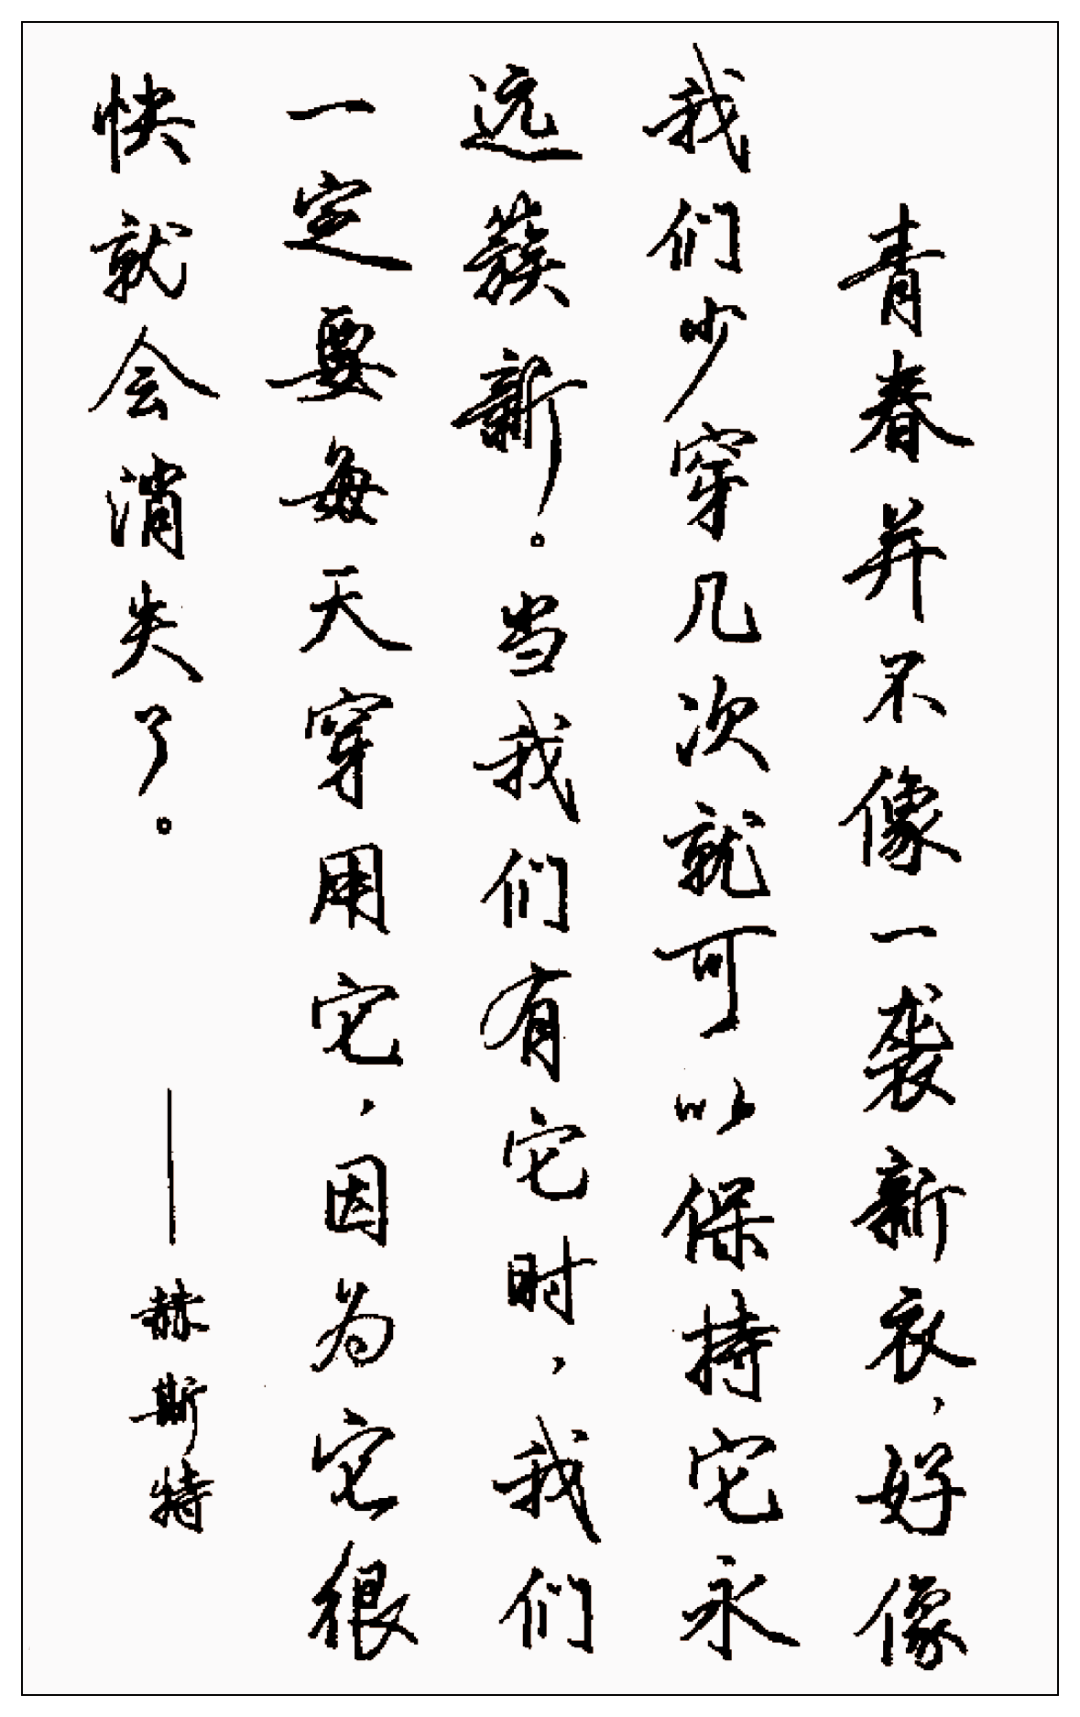 青春并不像一袭新衣,好像
我们少穿几次就可以保持它永
远簇新。当我们有它时,我们
一定要每天穿用它,因为它很
快就会消失了。
——赫斯特